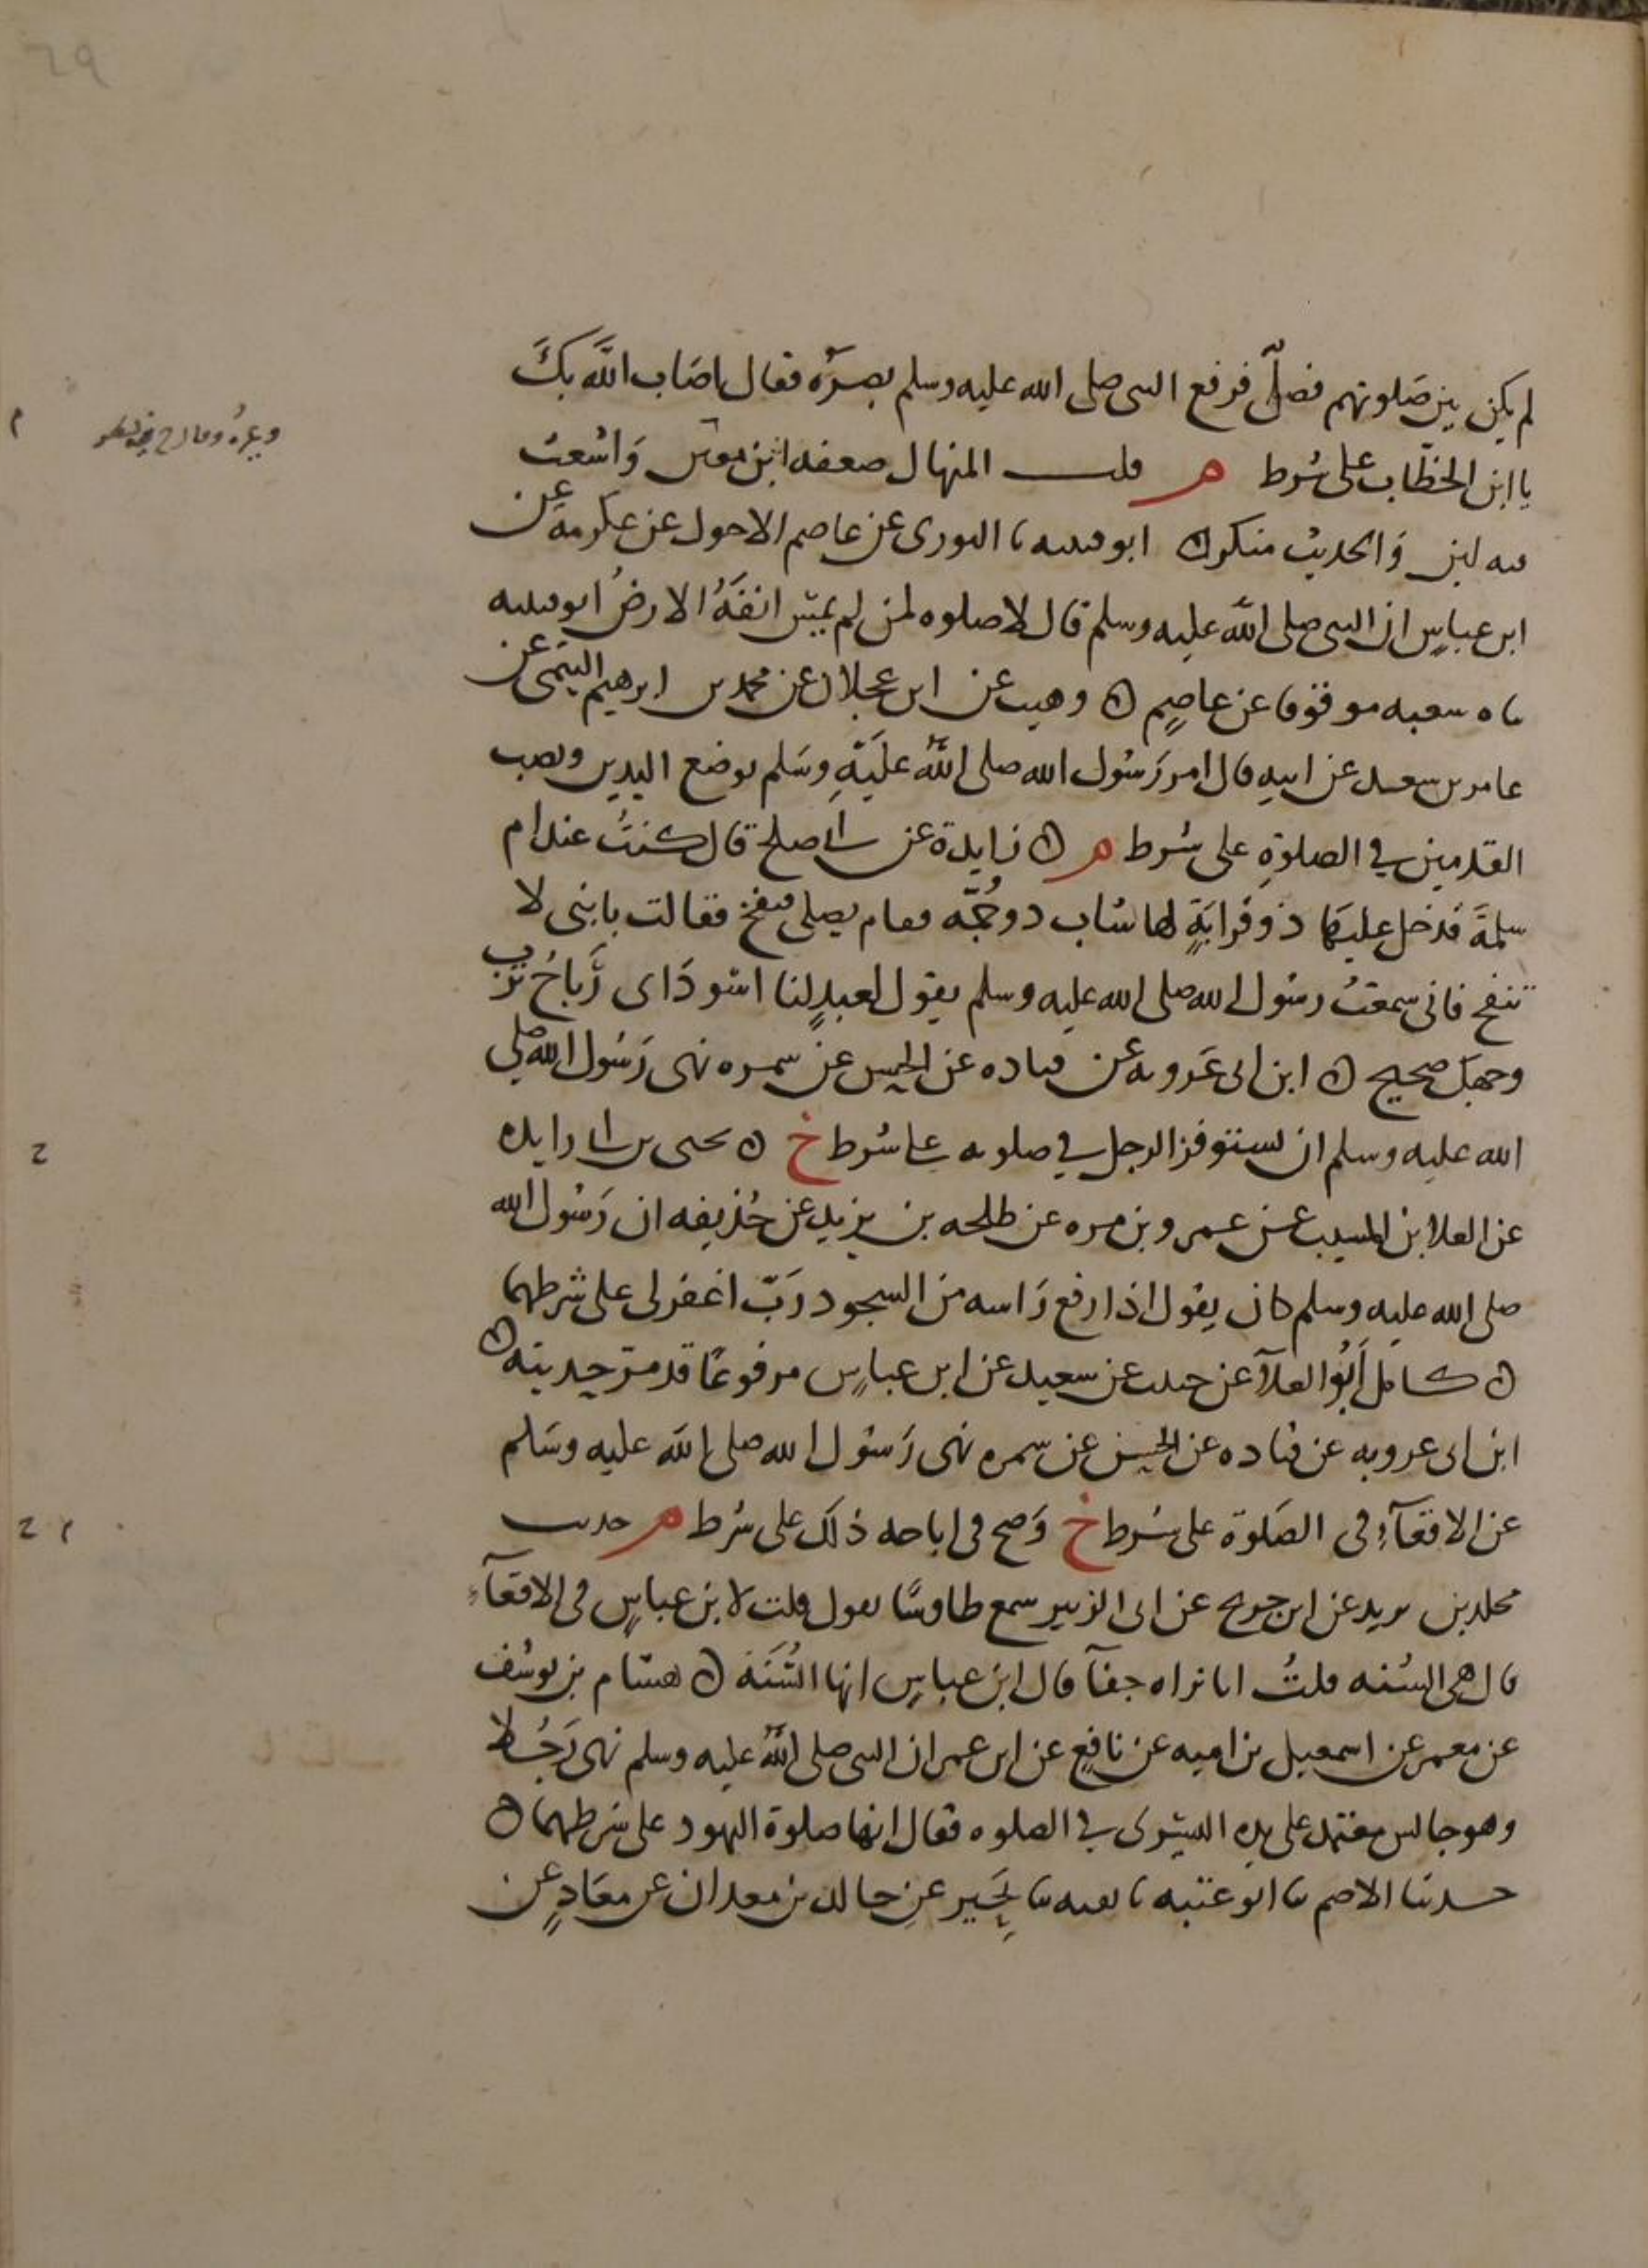 لم يكن بين صلوتهم فصل فرفع النبي صلى الله عليه وسلم بصره فقال اصاب الله بك
يا ابن الخطاب على شرط م قلت المنهال ضعفه ابن معين واشعث
فيه لين والحديث منكر ه ابو قتيبه ثنا الثوري عن عاصم الاحول عن عكرمة عن
ابن عباس ان النبي صلى الله عليه وسلم قال لا صلوه لمن لم يمس انفه الارض ابو قتيبه
ثناه شعبه موقوفا عن عاصم ه وهيب عن ابن عجلان عن محمد بن ابرهيم التيمي عن
عامر بن سعد عن ابيه قال امر رسول الله صلى الله عليه وسلم بوضع اليدين ونصب
القدمين في الصلوة على شرط م ه زايدة عن ابي صلح قال كنت عند ام
سلمة فدخل عليها ذو قرابة لها شاب ذو جمه فقام يصلي فنفخ فقالت يا بني لا
تنفخ فاني سمعت رسول الله صلى الله عليه وسلم يقول لعبد لنا اسود اى رباح ترب
وجهك صحيح ه ابن ابى عروبه عن قتاده عن الحسن عن سمره نهى رسول الله صلى
الله عليه وسلم ان يستوفز الرجل في صلوته على شرط خ ه يحيى بن ابي زايده
عن العلا بن المسيب عن عمرو بن مره عن طلحه بن يزيد عن حذيفه ان رسول الله
صلى الله عليه وسلم كان يقول اذا رفع راسه من السجود رب اغفر لى على شرطهما
ه كامل ابو العلآ عن حبيب عن سعيد عن ابن عباس مرفوعا قد مر حديثه ه
ابن ابى عروبه عن قتاده عن الحسن عن سمره نهى رسول الله صلى الله عليه وسلم
عن الاقعآء فى الصلوة على شرط خ وصح فى اباحه ذلك على شرط م حديث
مخلد بن يزيد عن ابن جريج عن ابى الزبير سمع طاوسا يقول قلت لابن عباس فى الاقعآء
قال هى السنه قلت انا نراه جفآ قال ابن عباس انها السنة ه هشام بن يوسف
عن معمر عن اسمعيل بن اميه عن نافع عن ابن عمر ان النبى صلى الله عليه وسلم نهى رجلا
وهو جالس معتمد على يده اليسرى في الصلوه فقال انها صلوة اليهود على شرطهما ه
حدثنا الاصم ثنا ابو عتبه ثنا بقيه ثنا بحير عن خالد بن معدان عن معاذ عن